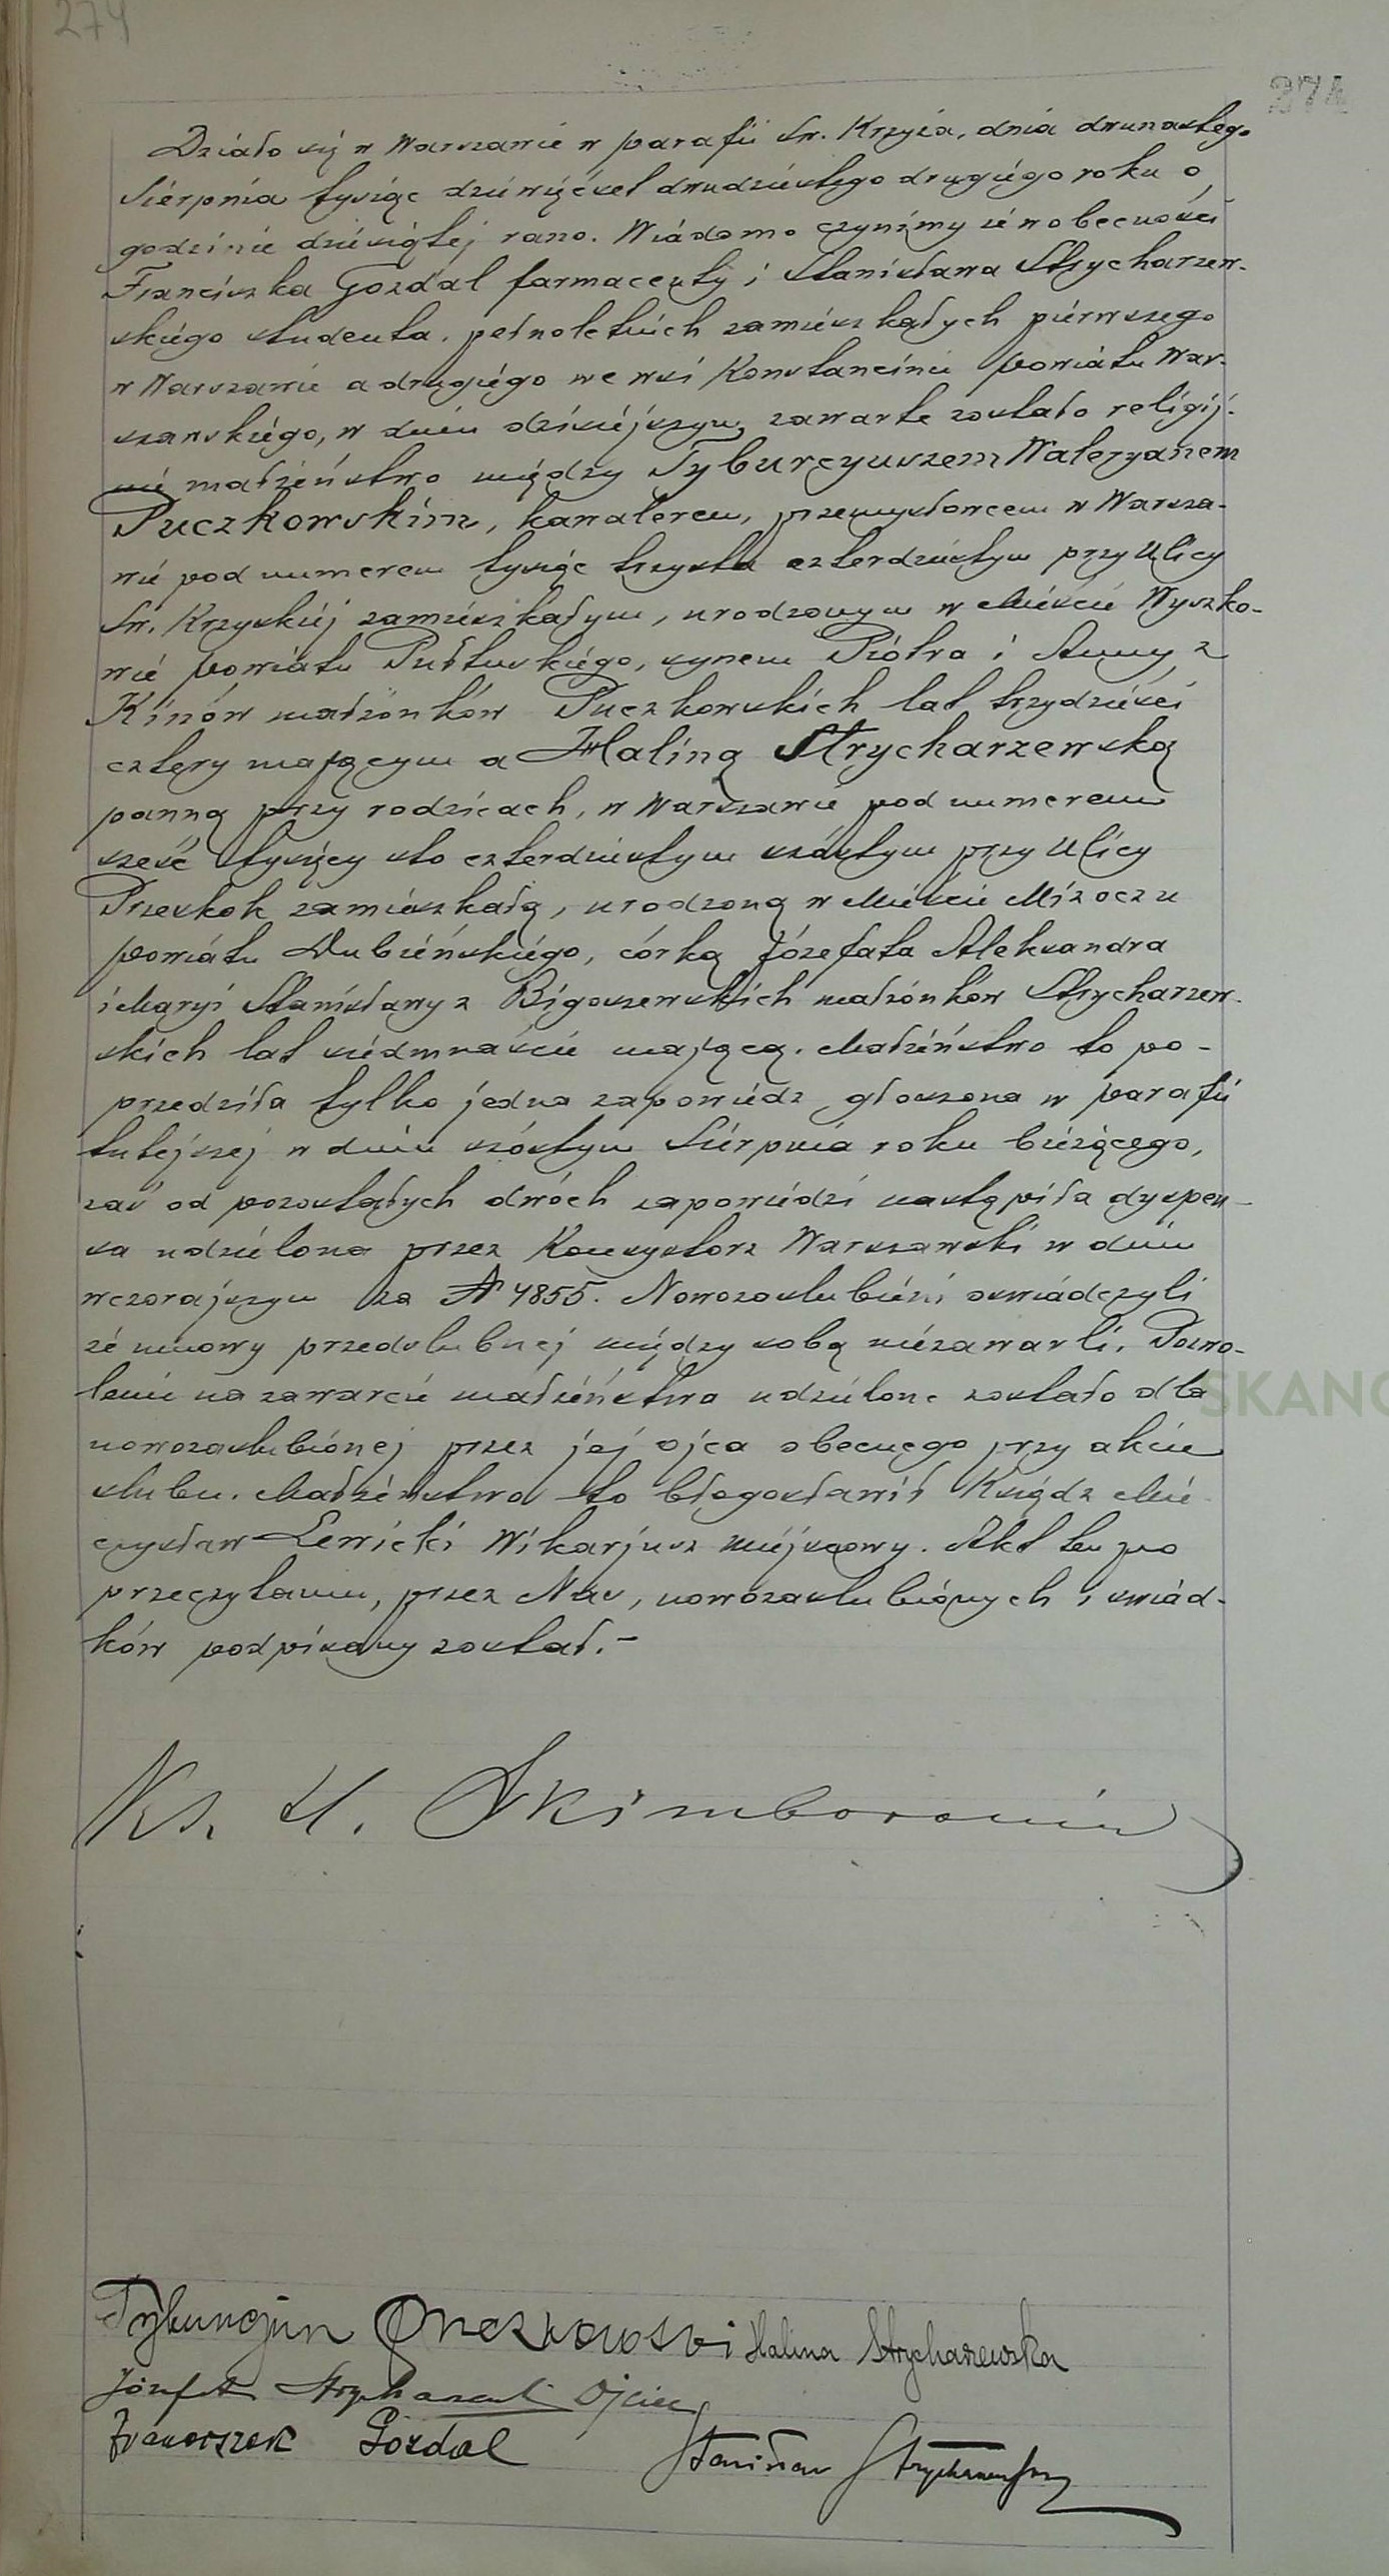 274
274
Działo się w Warszawie w parafii Św. Krzyża, dnia dwunastego
Sierpnia tysiąc dziewięćset dwudziestego drugiego roku o
godzinie dziesiątej rano. Wiadomo czynimy że w obecności
Franciszka Gozdal farmaceuty i Stanisława Strycharzew-
skiego studenta, pełnoletnich zamieszkałych pierwszego
w Warszawie a drugiego we wsi Konstancinie powiatu War-
szawskiego, w dniu dzisiejszym zawarte zostało religij-
nie małżeństwo między Tyburcyuszem Waleryanem
Puczkowskim, kawalerem, przemysłowcem w Warsza-
wie pod numerem tysiąc trzysta czterdziestym przy Ulicy
Św. Krzyskiej zamieszkałym, urodzonym w Mieście Wyszko-
wie powiatu Pułtuskiego, synem Piotra i Anny z
Kinów małżonków Puczkowskich lat trzydzieści
cztery mającym a Haliną Strycharzewską
panną przy rodzicach, w Warszawie pod numerem
sześć tysięcy sto czterdziestym szóstym przy Ulicy
Przeskok zamieszkałą, urodzoną w Mieście Mizoczu
powiatu Dubieńskiego, córką Józefata Aleksandra
i Maryi Stanisławy z Bigoszewskich małżonków Strycharzew-
skich lat siedmnaście mającą. Małżeństwo to po-
przedziła tylko jedna zapowiedz głoszona w parafii
tutejszej w dniu szóstym Sierpnia roku bieżącego,
zaś od pozostałych dwóch zapowiedzi nastąpiła dyspen-
sa udzielona przez Konsystorz Warszawski w dniu
wczorajszym za № 4855. Nowozaslubieni oswiadczyli
że umowy przedslubnej między sobą niezawarli. Pozwo-
lenie na zawarcie małżeństwa udzielone zostało dla
nowozaslubionej przez jej ojca obecnego przy akcie
slubu. Małżeństwo to błogosławił Ksiądz Mie-
czysław Lewicki Wikarjusz miejscowy. Akt ten po
przeczytaniu, przez Nas, nowozaslubionych i swiad-
ków podpisany został.-
SKANO
Ks. H. Skimborowicz
Tyburcjusz Puczkowski Halina Strycharzewska
Józefat Strycharzewski Ojciec
Franciszek Gozdal Stanisław Strycharzewski